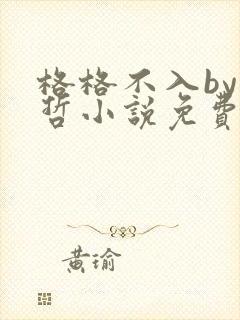 格格不入by
哲小説免費
黃瑜